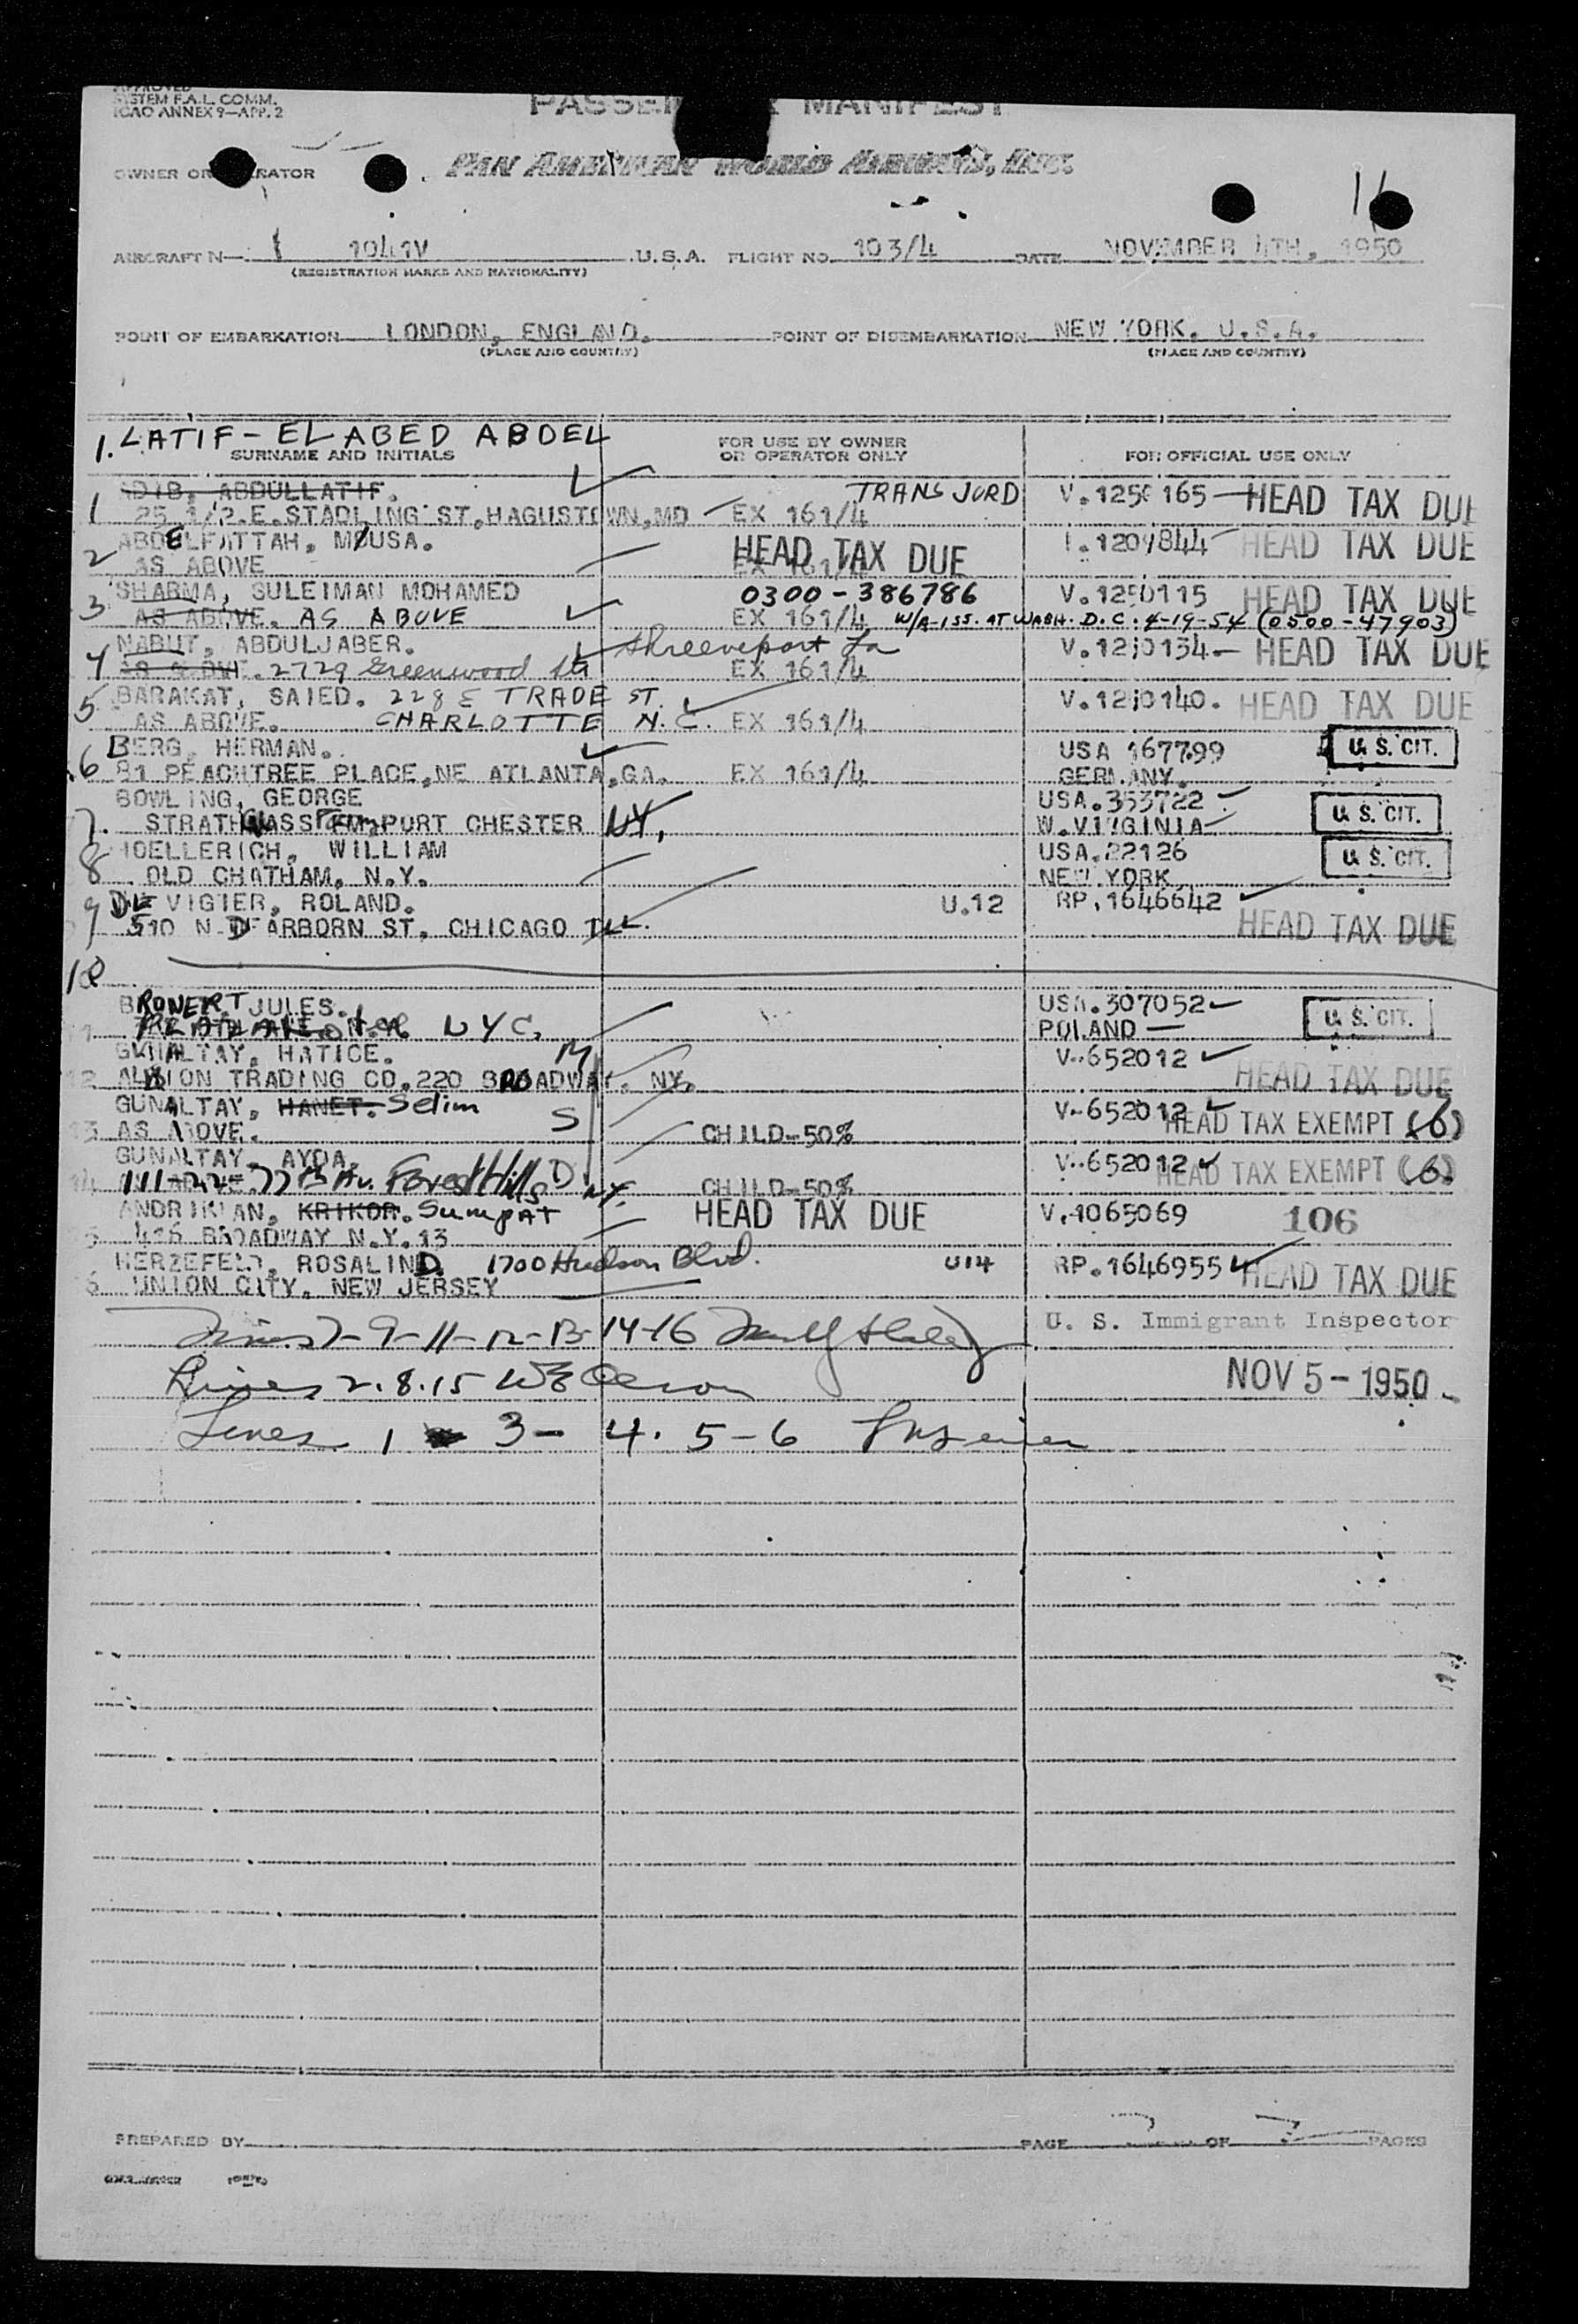 APPROVED
SYSTEM F.A.L. COMM.
ICAO ANNEX 9—APP. 2
MANIFEST
OWNER OR
PAN AMERICAN WORLD AIRWAYS, INC.
16
AIRCRAFT N— 1041V U.S.A. FLIGHT NO. 103/4 DATE NOVEMBER 4TH, 1950
(REGISTRATION MARKS AND NATIONALITY)
POINT OF EMBARKATION LONDON, ENGLAND. POINT OF DISEMBARKATION NEW YORK, U.S.A.
(PLACE AND COUNTRY) (PLACE AND COUNTRY)
1. LATIF-EL ABED ABDEL
SURNAME AND INITIALS FOR USE BY OWNER OR OPERATOR ONLY FOR OFFICIAL USE ONLY
ADIB, ABDULLATIF. TRANS JORD HEAD TAX DUE
1 ST, HAGUSTOWN, MD EX 161/4
ABDELFATTAH, MOUSA. HEAD TAX DUE HEAD TAX DUE
2 AS ABOVE EX 161/4
SHARMA, SULEIMAN MOHAMED 0300-386786 HEAD TAX DUE
3 AS ABOVE. AS ABOVE EX 161/4 W/A-ISS. AT WASH. D.C. 4-19-54 (0500-47903)
NABUT, ABDULJABER. Shreeveport La HEAD TAX DUE
4 AS ABOVE. 2729 Greenwood EX 161/4
BARAKAT, SAIED. 228 E TRADE ST. HEAD TAX DUE
5 AS ABOVE. CHARLOTTE N.C. EX 161/4
BERG, HERMAN. USA 167799 U.S. CIT.
6 81 PEACHTREE PLACE, NE ATLANTA, GA. EX 161/4 GERMANY.
BOWLING, GEORGE USA.353722 U.S. CIT.
7. PORT CHESTER NY, W.VIRGINIA
HOELLERICH, WILLIAM USA.22126 U.S. CIT.
8 OLD CHATHAM, N.Y. NEW YORK
DE VIGIER, ROLAND. U.12 RP.1646642
9 510 N DEARBORN ST, CHICAGO ILL. HEAD TAX DUE
10
BRONERT JULES. USA.307052 U.S. CIT.
11 POLAND
GUNALTAY, HATICE. M V.652012
12 ALBION TRADING CO. 220 BROADWAY. NY. HEAD TAX DUE
GUNALTAY, HANET. Selim S V-652012
13 AS ABOVE. CHILD-50% HEAD TAX EXEMPT (6)
GUNALTAY, AYDA. D V.652012
14 Forest Hills NY. CHILD-50% HEAD TAX EXEMPT (6)
KRIKOR. Sumpat HEAD TAX DUE V.1065069 106
BROADWAY N.Y.13
HERZEFELD, ROSALIND. 1700 Hudson Blvd. U14 RP.1646955
UNION CITY, NEW JERSEY HEAD TAX DUE
7-9-11-12-13-14-16 U. S. Immigrant Inspector
Lines 2.8.15 NOV 5-1950
Lines 1 3- 4. 5-6
PREPARED BY PAGE OF PAGES